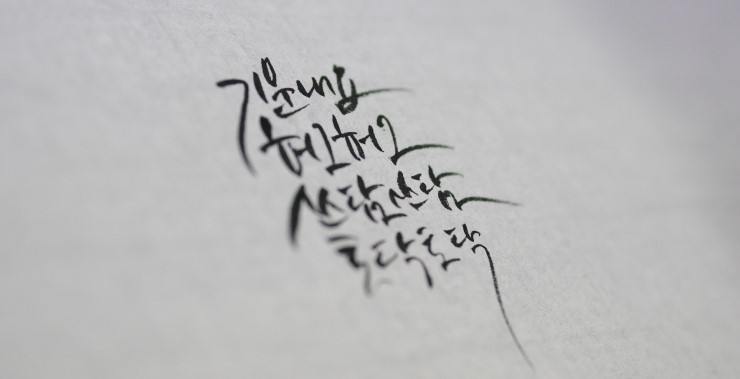 기운내요
쓰담쓰담
토닥토닥